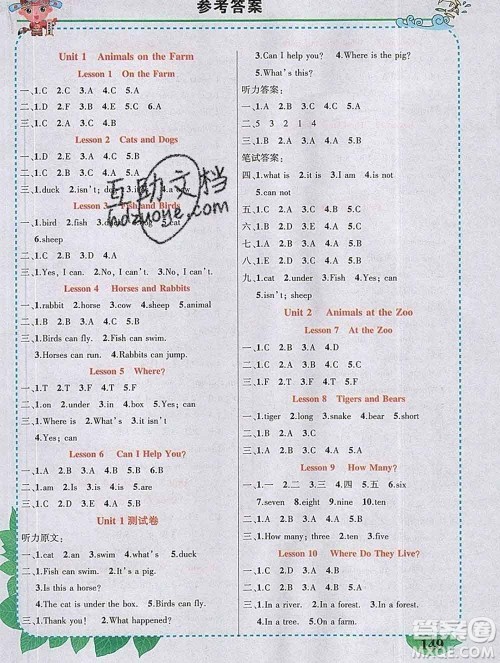 参考答案
Unit 1 Animals on the Farm
Lesson 1 On the Farm
一、1.C 2.C 3.A 4.C 5.A
二、1.D 2.F 3.E 4.C 5.B 6.A
三、1.C 2.B 3.C 4.A 5.A
Lesson 2 Cats and Dogs
一、1.D 2.E 3.A 4.C 5.B
二、1.C 2.A 3.B 4.A 5.B
三、1.duck 2.isn't; dog 3. 4.a cow
Lesson 3 Fish and Birds
一、1.bird 2.fish 3. 4. 5.cat
6.sheep
二、1.C 2.A 3.C 4.B 5.A
三、1.Yes, I can. 2.No, I can't. 3.No, I can't.
Lesson 4 Horses and Rabbits
一、1.rabbit 2.horse 3.cow 4.sheep 5.animal
二、1.C 2.C 3.B 4.A 5.A
三、1.Birds can fly. 2.Fish can swim.
3.Horses can run. 4.Rabbits can jump.
Lesson 5 Where?
一、1.T 2.T 3.F 4.T 5.F
二、1.on 2.under 3.in 4.box 5.Yes; can
三、1.What's 2.What's 3.it isn't
4.Yes; can
Lesson 6 Can I Help You?
一、1.B 2.D 3.C 4.E 5.A
二、1.am 2.Is 3.is 4.are
三、1.C 2.A 3.B 4.C 5.A
Unit 1 测试卷
听力原文：
一、1.cat 2.an 3.swim 4.what's 5.duck
二、1.fish 2.an 3.swim 4.what's 5.fly
三、1.Is this a horse?
2.The cat is under the box. 3.Birds can fly.
四、1.Thank you! 2.What happened?
3.Can I help you? 4.Where is the pig?
5.What's this?
听力答案：
一、1.A 2.B 3.C 4.A 5.A
二、5 3 2 1 4
三、1.C 2.B 3.C 4.A 5.B
笔试答案：
四、1.what is 2.it is 3.I am 4.is not
5.can not
五、1.C 2.C 3.B 4.A 5.A
六、1.B 2.A 3.C 4.B 5.A
七、1.B 2.C 3.A 4.C 5.A
八、1.B 2.C 3.D 4.E 5.A
九、1.cat 2.under 3.Fish 4.Yes; can
5.isn't; sheep
Unit 2 Animals at the Zoo
Lesson 7 At the Zoo
一、1.C 2.B 3.A 4.D
二、1.A 2.B 3.A 4.C 5.A
三、1.C 2.A 3.B 4.D
Lesson 8 Tigers and Bears
一、1.tiger 2.long 3.snake 4.bear 5.short
二、1.B 2.B 3.A 4.A 5.A
三、1.T 2.F 3.F 4.T 5.F
Lesson 9 How Many?
一、1.一 2.二 3.三 4.四 5.五 6.六
二、1.seven 2.eight 3.nine 4.ten 5.six
三、1.C 2.B 3.C 4.A 5.A
四、1.How many; three 2.How many; ten
Lesson 10 Where Do They Live?
一、1.In a river. 2.In a forest. 3.In a tree.
4.In a forest. 5.In a tree.
二、1.C 2.B 3.C 4.A 5.A
149
互助文档
hdzuoye.com
答案圈
MXQE.COM